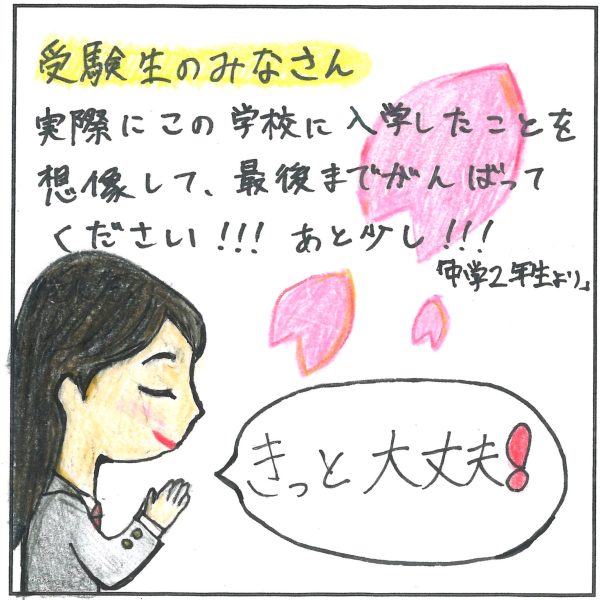 受験生のみなさん
実際にこの学校に入学したことを
想像して、最後までがんばって
ください!!! あと少し!!!
「中学2年生より」
きっと大丈夫!